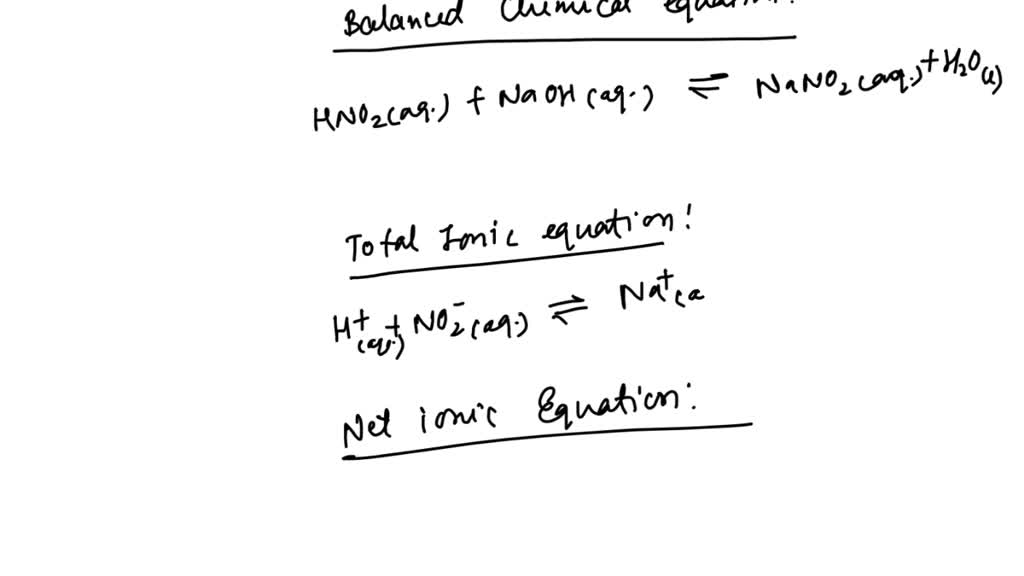 Balanced Chemical equation:
HNO2(aq.) + NaOH(aq.) ⇌ NaNO2(aq.) + H2O(l)
Total Ionic equation!
H+(aq.) + NO2-(aq.) ⇌ Na+(a
Net ionic Equation: